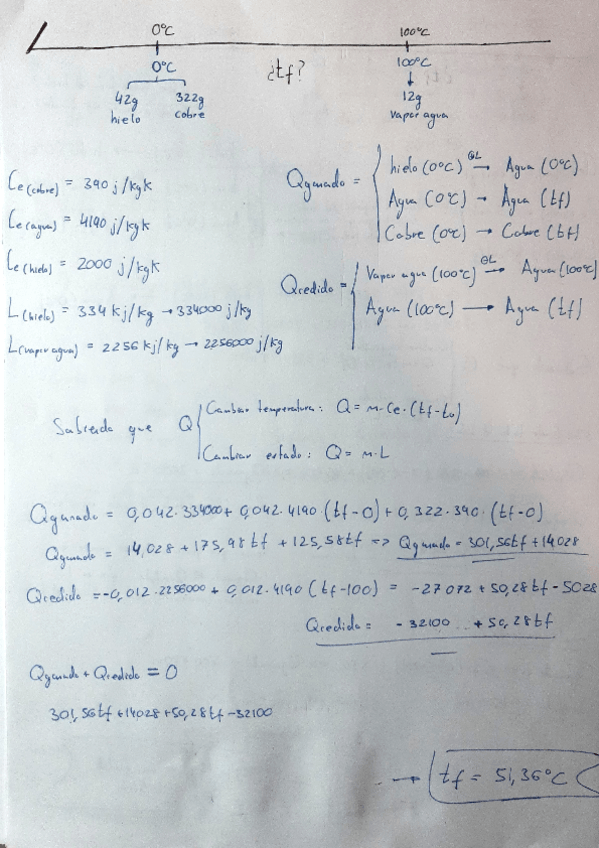 0°C 100°C
0°C ¿tf? 100°C
42g 322g 12g
hielo cobre vapor agua
Ce(cobre) = 390 j/kgk
Ce(agua) = 4190 j/kgk
Ce(hielo) = 2000 j/kgk
L(hielo) = 334 kj/kg → 334000 j/kg
L(vapor agua) = 2256 kj/kg → 2256000 j/kg
Qganado =
hielo (0°C) QL→ Agua (0°C)
Agua (0°C) → Agua (tf)
Cobre (0°C) → Cobre (tf)
Qcedido =
Vapor agua (100°C) QL→ Agua (100°C)
Agua (100°C) → Agua (tf)
Sabiendo que Q
Cambiar temperatura: Q = m·Ce·(tf-to)
Cambiar estado: Q = m·L
Qganado = 0,042·334000 + 0,042·4190·(tf-0) + 0,322·390·(tf-0)
Qganado = 14,028 + 175,98tf + 125,58tf => Qganado = 301,56tf + 14028
Qcedido = -0,012·2256000 + 0,012·4190 (tf-100) = -27072 + 50,28tf - 5028
Qcedido = -32100 + 50,28tf
Qganado + Qcedido = 0
301,56tf + 14028 + 50,28tf - 32100
→ tf = 51,36°C